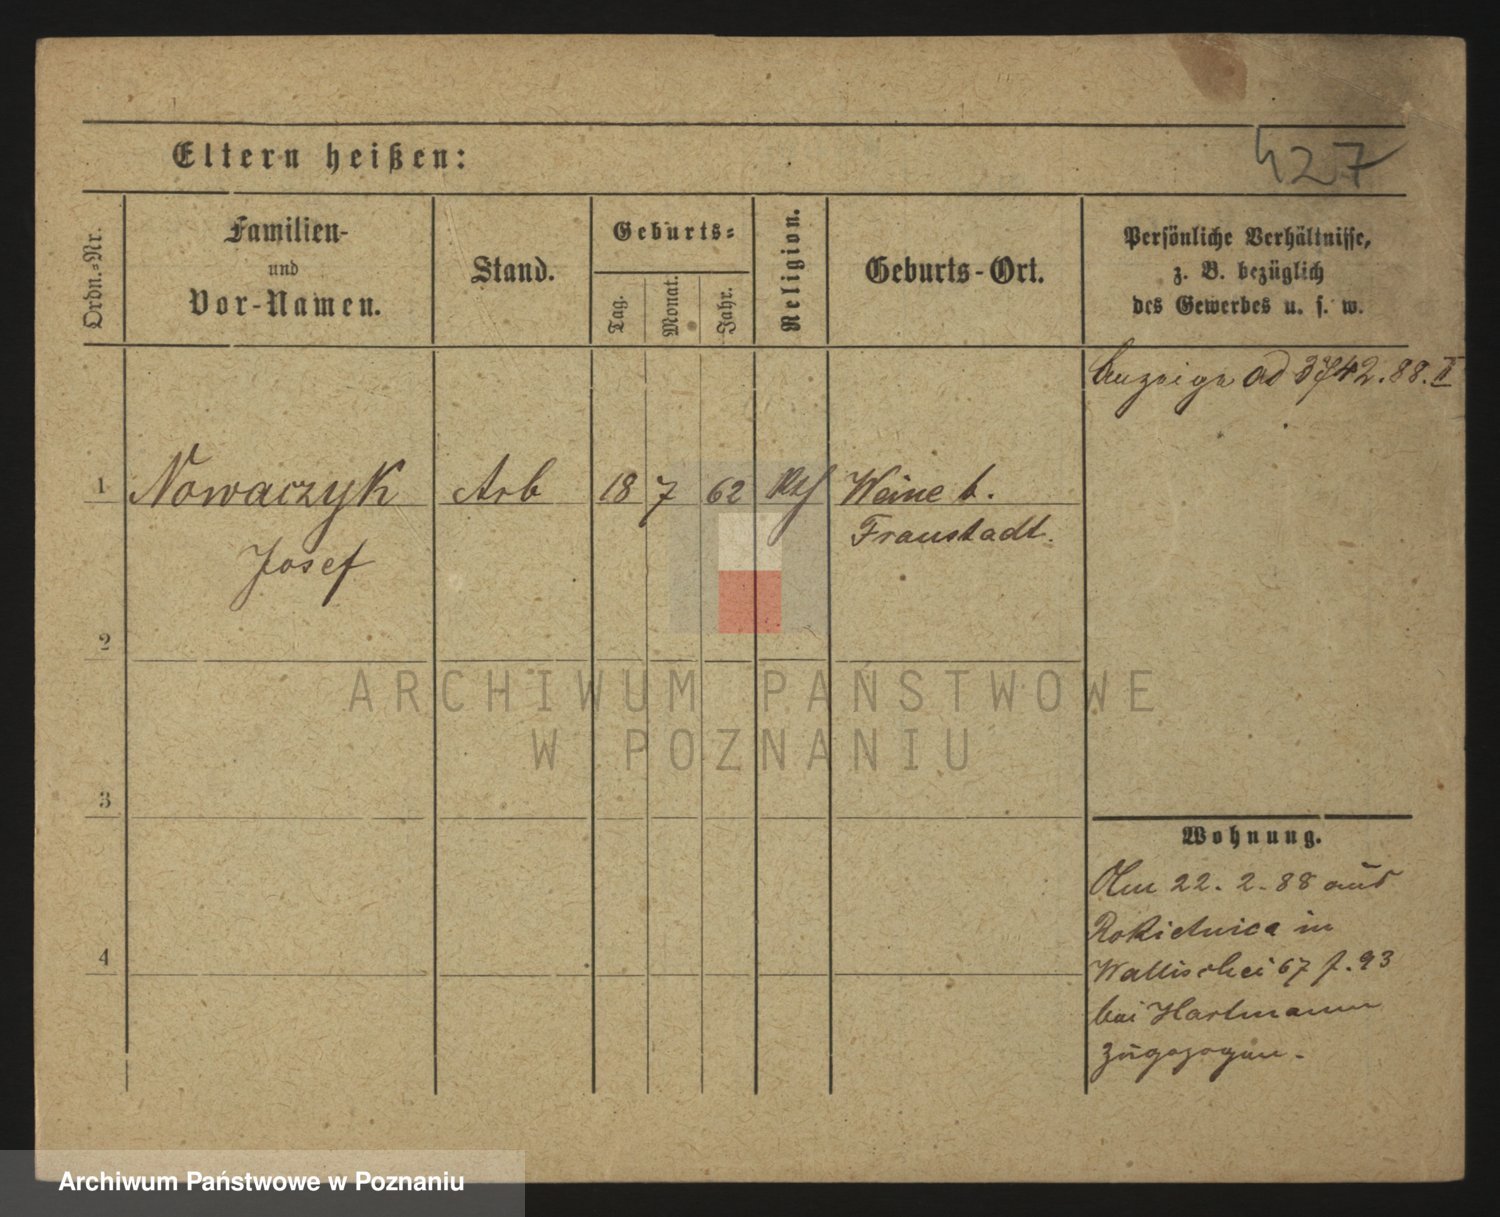 Eltern heißen:
427
Ordn.-Nr.
Familien-
und
Vor-Namen.
Stand.
Geburts-
Tag.
Monat.
Jahr.
Religion.
Geburts-Ort.
Persönliche Verhältnisse,
z. B. bezüglich
des Gewerbes u. s. w.
Anzeige ad 3742.88. II
1
Nowaczyk
Arb
18
7
62
Kth
Weine b.
Josef
Fraustadt.
2
ARCHIWUM PAŃSTWOWE
W POZNANIU
3
Wohnung.
Am 22. 2. 88 aus
Rokietnica in
4
Wallischei 67 f. 93
bei Hartmann
zugezogen.
Archiwum Państwowe w Poznaniu